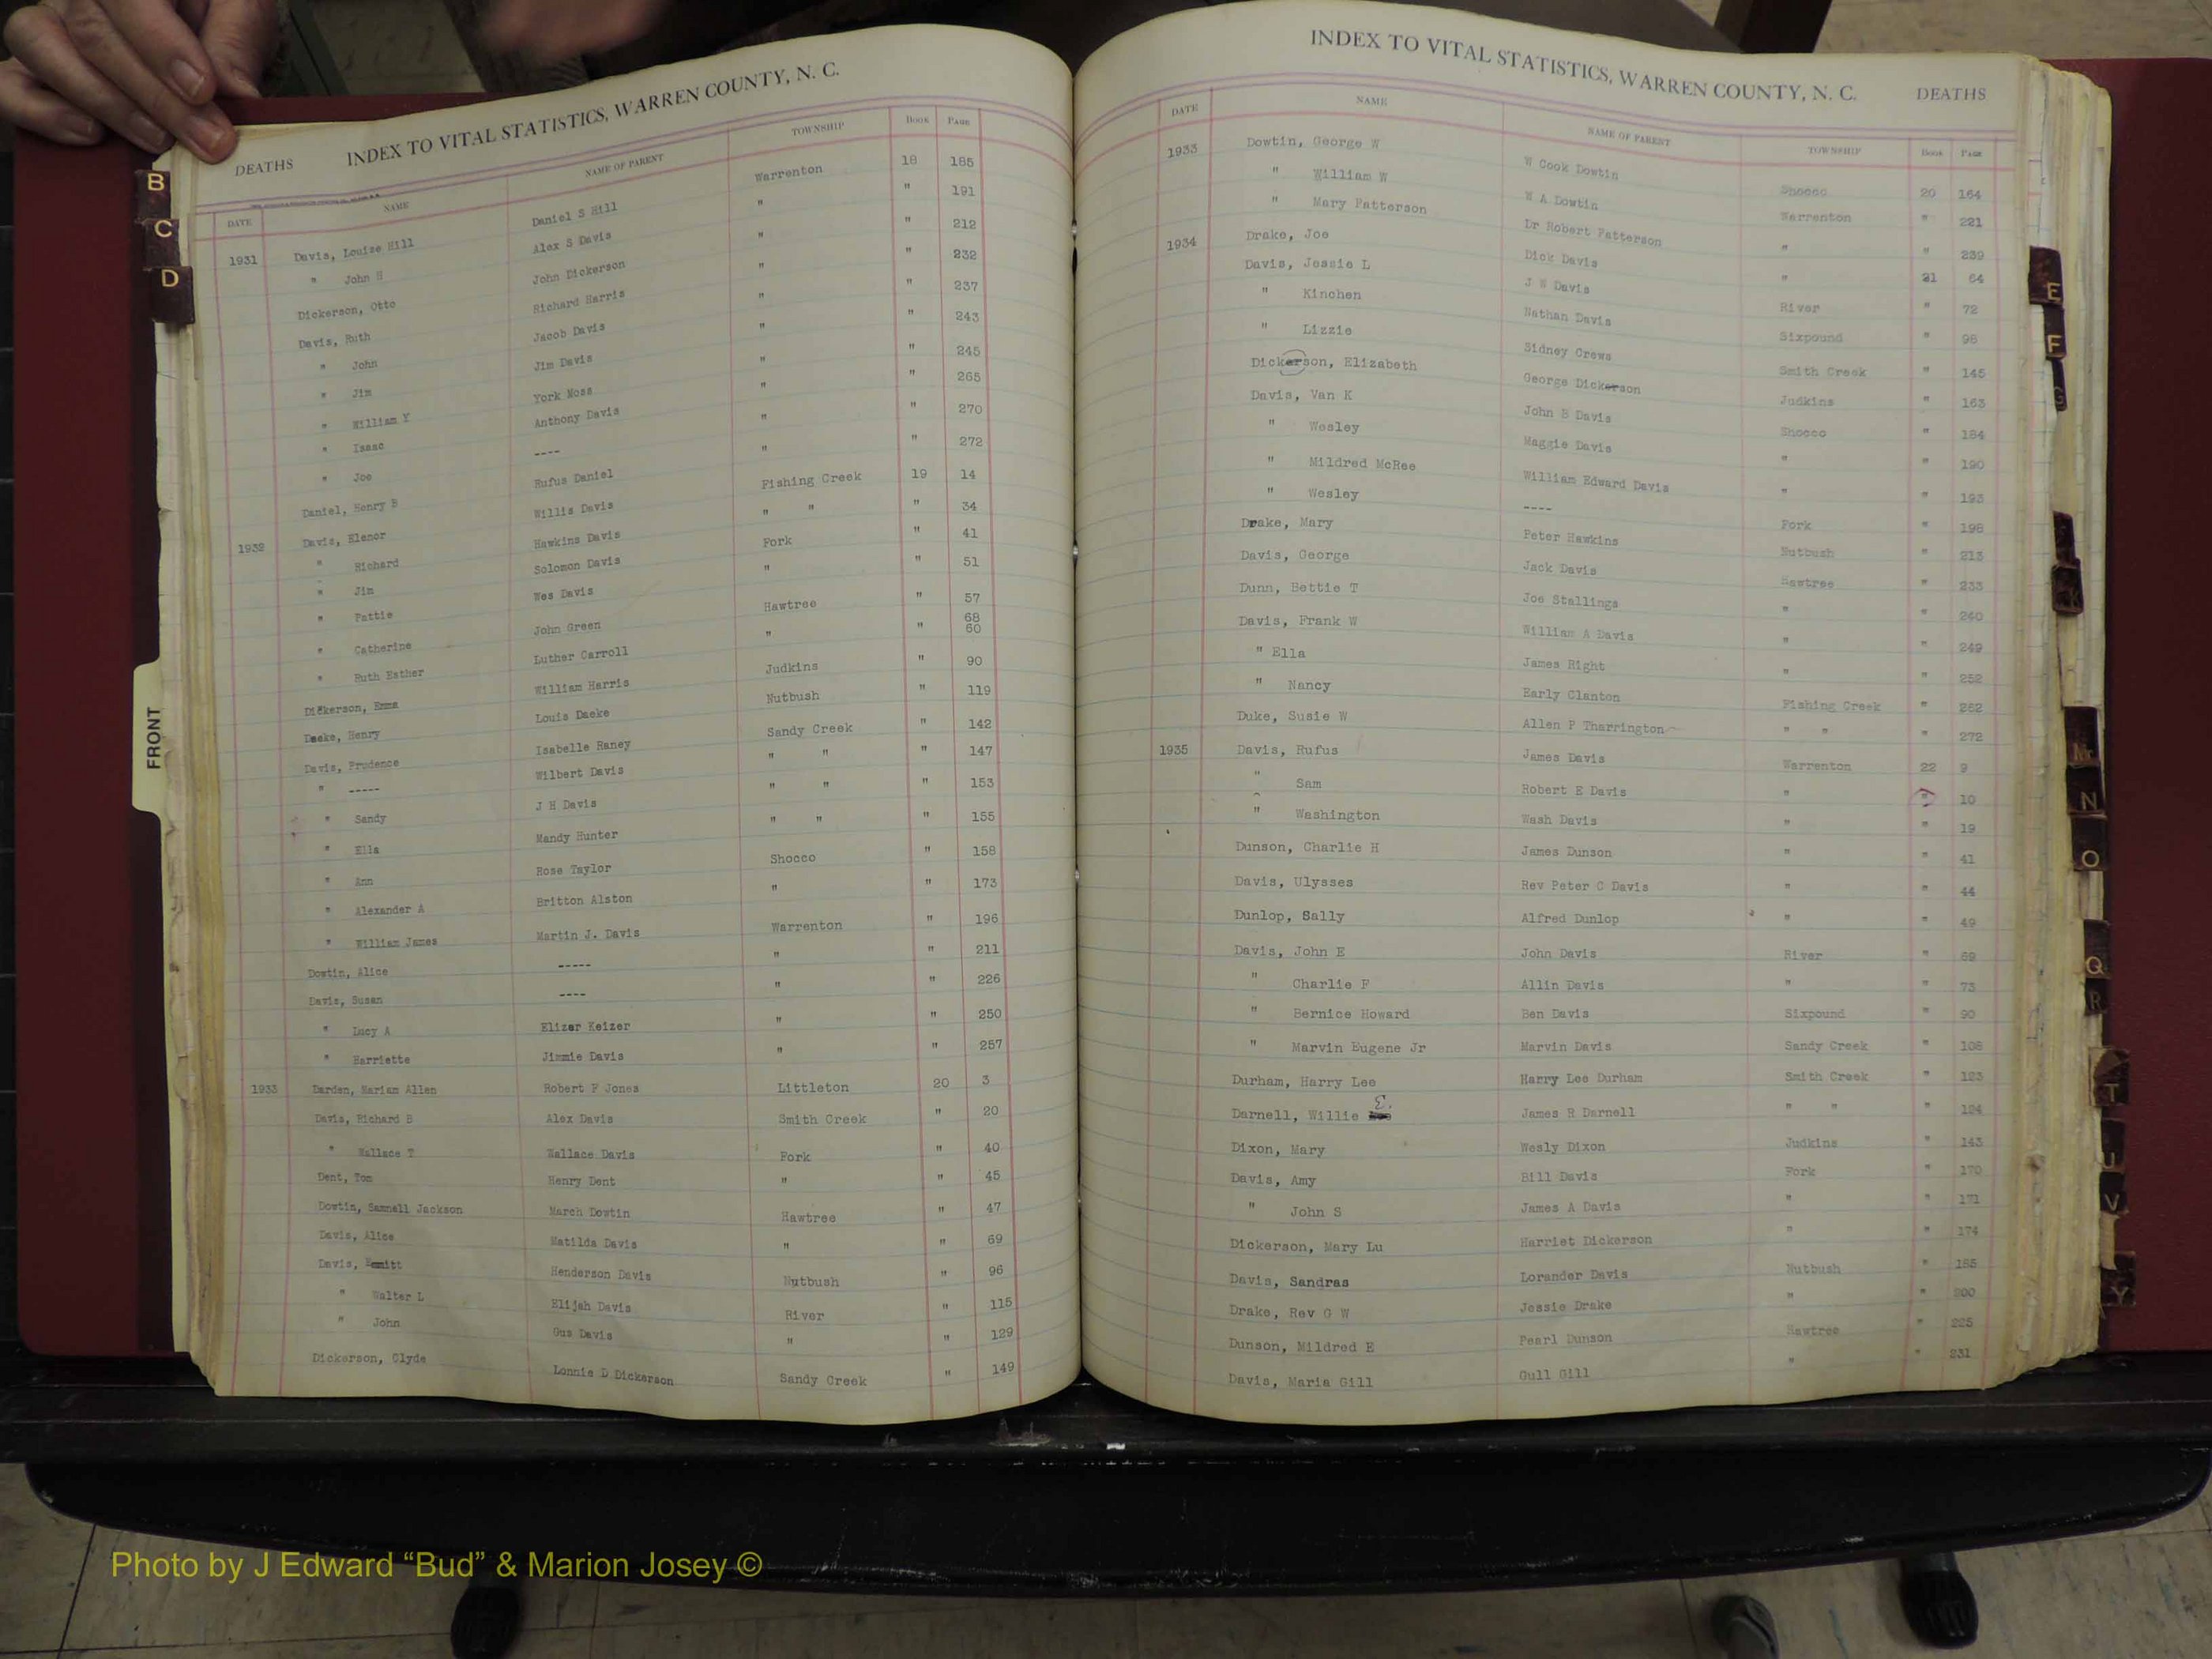 DEATHS INDEX TO VITAL STATISTICS, WARREN COUNTY, N. C.
DATE NAME NAME OF PARENT TOWNSHIP Book Page
1931 Davis, Louize Hill Daniel S Hill Warrenton 18 185
" John H Alex S Davis " " 191
Dickerson, Otto John Dickerson " " 212
Davis, Ruth Richard Harris " " 232
" John Jacob Davis " " 237
" Jim Jim Davis " " 243
" William Y York Moss " " 245
" Isaac Anthony Davis " " 265
" Joe ---- " " 270
Daniel, Henry B Rufus Daniel " " 272
1932 Davis, Elenor Willis Davis Fishing Creek 19 14
" Richard Hawkins Davis " " " 34
" Jim Solomon Davis Fork " 41
" Pattie Wes Davis " " 51
" Catherine John Green Hawtree " 57
" Ruth Esther Luther Carroll " " 68 60
Dickerson, Emma William Harris Judkins " 90
Daeke, Henry Louis Daeke Nutbush " 119
Davis, Prudence Isabelle Raney Sandy Creek " 142
" ----- Wilbert Davis " " " 147
" Sandy J H Davis " " " 153
" Ella Mandy Hunter " " " 155
" Ann Rose Taylor Shocco " 158
" Alexander A Britton Alston " " 173
" William James Martin J. Davis Warrenton " 196
Dowtin, Alice ----- " " 211
Davis, Susan ---- " " 226
" Lucy A Elizer Keizer " " 250
" Harriette Jimmie Davis " " 257
1933 Darden, Mariam Allen Robert F Jones Littleton 20 3
Davis, Richard B Alex Davis Smith Creek " 20
" Wallace T Wallace Davis Fork " 40
Dent, Tom Henry Dent " " 45
Dowtin, Samnell Jackson March Dowtin Hawtree " 47
Davis, Alice Matilda Davis " " 69
Davis, Emmitt Henderson Davis Nutbush " 96
" Walter L Elijah Davis River " 115
" John Gus Davis " " 129
Dickerson, Clyde Lonnie D Dickerson Sandy Creek " 149
INDEX TO VITAL STATISTICS, WARREN COUNTY, N. C. DEATHS
DATE NAME NAME OF PARENT TOWNSHIP Book Page
1933 Dowtin, George W W Cook Dowtin Shocco 20 164
" William W W A Dowtin Warrenton " 221
" Mary Patterson Dr Robert Patterson " " 239
1934 Drake, Joe Dick Davis " 21 64
Davis, Jessie L J W Davis River " 72
" Kinchen Nathan Davis Sixpound " 96
" Lizzie Sidney Crews Smith Creek " 145
Dickerson, Elizabeth George Dickerson Judkins " 163
Davis, Van K John B Davis Shocco " 184
" Wesley Maggie Davis " " 190
" Mildred McRee William Edward Davis " " 193
" Wesley ---- Fork " 198
Drake, Mary Peter Hawkins Nutbush " 213
Davis, George Jack Davis Hawtree " 233
Dunn, Bettie T Joe Stallings " " 240
Davis, Frank W William A Davis " " 249
" Ella James Right " " 252
" Nancy Early Clanton Fishing Creek " 262
Duke, Susie W Allen P Tharrington " " " 272
1935 Davis, Rufus James Davis Warrenton 22 9
" Sam Robert E Davis " " 10
" Washington Wash Davis " " 19
Dunson, Charlie H James Dunson " " 41
Davis, Ulysses Rev Peter C Davis " " 44
Dunlop, Sally Alfred Dunlop " " 49
Davis, John E John Davis River " 69
" Charlie F Allin Davis " " 73
" Bernice Howard Ben Davis Sixpound " 90
" Marvin Eugene Jr Marvin Davis Sandy Creek " 108
Durham, Harry Lee Harry Lee Durham Smith Creek " 123
Darnell, Willie E. James R Darnell " " " 124
Dixon, Mary Wesly Dixon Judkins " 143
Davis, Amy Bill Davis Fork " 170
" John S James A Davis " " 171
Dickerson, Mary Lu Harriet Dickerson " " 174
Davis, Sandras Lorander Davis Nutbush " 185
Drake, Rev G W Jessie Drake " " 200
Dunson, Mildred E Pearl Dunson Hawtree " 225
Davis, Maria Gill Gull Gill " " 231
B
C
D
FRONT
E
F
G
K
Mc
N
O
Q
R
T
U
V
Y
Photo by J Edward “Bud” & Marion Josey ©